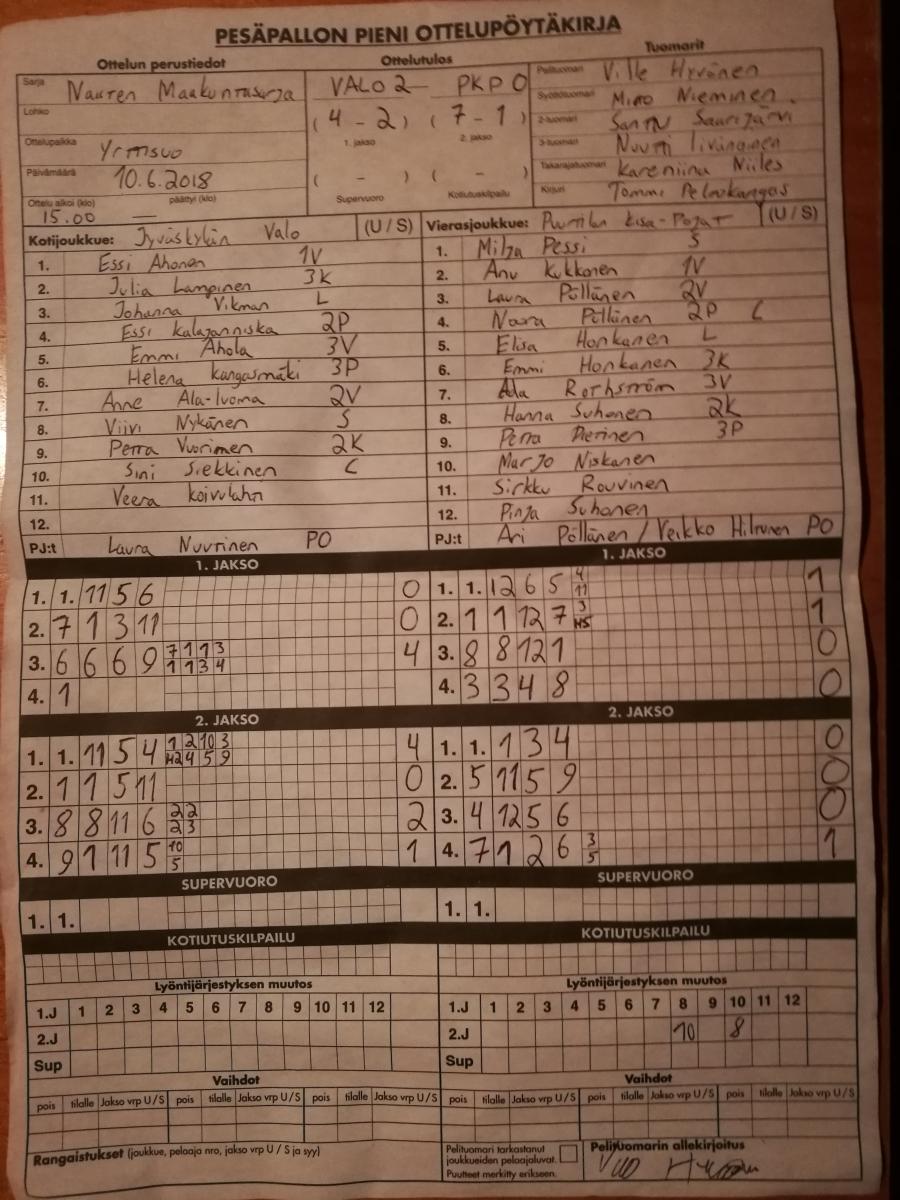 PESÄPALLON PIENI OTTELUPÖYTÄKIRJA
Ottelun perustiedot Ottelutulos Tuomarit
Sarja Naisten Maakuntasarja VALO 2 PKPO Pelituomari Ville Hyvönen
Lohko Syöttötuomari Miro Nieminen
(4 - 2) (7 - 1) 2-tuomari Santtu Saarijärvi
1. jakso 2. jakso
Ottelupaikka Yrttisuo 3-tuomari Nuutti
Päivämäärä 10.6.2018 ( - ) ( - ) Takarajatuomari Kareniina Niiles
Ottelu alkoi (klo) 15.00 päättyi (klo) — Supervuoro Kotiutuskilpailu Kirjuri Tommi Pelaokangas
Kotijoukkue: Jyväskylän Valo (U / S) Vierasjoukkue: Puurtilan Kisa-Pojat (U / S)
1. Essi Ahonen 1V 1. Milja Pessi S
2. Julia Lampinen 3K 2. Anu Kukkonen 1V
3. Johanna Vikman L 3. Laura Pöllänen 2V
4. Essi Kalajanniska 2P 4. Noora Pöllänen 2P C
5. Emmi Ahola 3V 5. Elisa Honkanen L
6. Helena Kangasmäki 3P 6. Emmi Honkanen 3K
7. Anne Ala-Ivoma 2V 7. Ada Rothström 3V
8. Viivi Nykänen S 8. Hanna Suhonen 2K
9. Petra Vuorinen 2K 9. Petra Pierinen 3P
10. Sini Siekkinen C 10. Marjo Niskanen
11. Veera Koivulahti 11. Sirkku Rouvinen
12. 12. Pinja Suhonen
PJ:t Laura Nuutinen PO PJ:t Ari Pöllänen / Veikko Hiltunen PO
1. JAKSO 1. JAKSO
1. 1. 11 5 6 0 1. 1. 12 6 5 4 11 1
2. 7 1 3 11 0 2. 1 1 12 7 3 H5 1
3. 6 6 6 9 7 1 1 3 1 1 3 4 4 3. 8 8 12 1 0
4. 1 4. 3 3 4 8 0
2. JAKSO 2. JAKSO
1. 1. 11 5 4 1 2 10 3 H2 4 5 9 4 1. 1. 1 3 4 0
2. 1 1 5 11 0 2. 5 11 5 9 0
3. 8 8 11 6 2 2 2 3 2 3. 4 12 5 6 0
4. 9 1 11 5 10 5 1 4. 7 1 2 6 3 5 1
SUPERVUORO SUPERVUORO
1. 1. 1. 1.
KOTIUTUSKILPAILU KOTIUTUSKILPAILU
Lyöntijärjestyksen muutos Lyöntijärjestyksen muutos
1.J 1 2 3 4 5 6 7 8 9 10 11 12 1.J 1 2 3 4 5 6 7 8 9 10 11 12
2.J 2.J 10 8
Sup Sup
Vaihdot Vaihdot
pois tilalle Jakso vrp U/S pois tilalle Jakso vrp U/S pois tilalle Jakso vrp U/S pois tilalle Jakso vrp U/S pois tilalle Jakso vrp U/S pois tilalle Jakso vrp U/S
Rangaistukset (joukkue, pelaaja nro, jakso vrp U / S ja syy) Pelituomari tarkastanut Pelituomarin allekirjoitus
joukkueiden pelaajaluvat.
Puutteet merkitty erikseen.